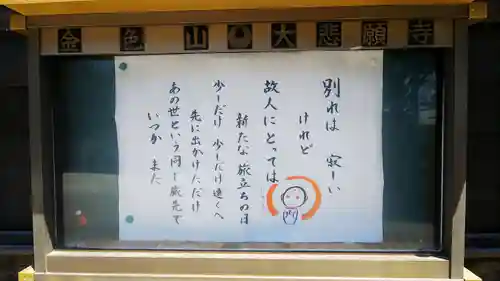 金色山大悲願寺
別れは 寂しい
けれど
故人にとっては
新たな 旅立ちの日
少しだけ 少しだけ遠くへ
先に出かけただけ
あの世という同じ旅先で
いつか また